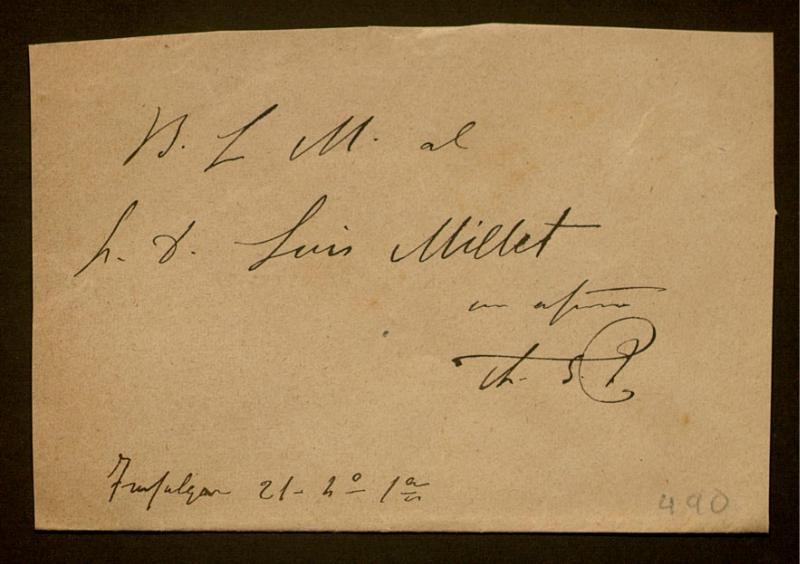 B. L. M. al
S. D. Luis Millet
su afmo
Trafalgar 21 - 2º 1ª
490